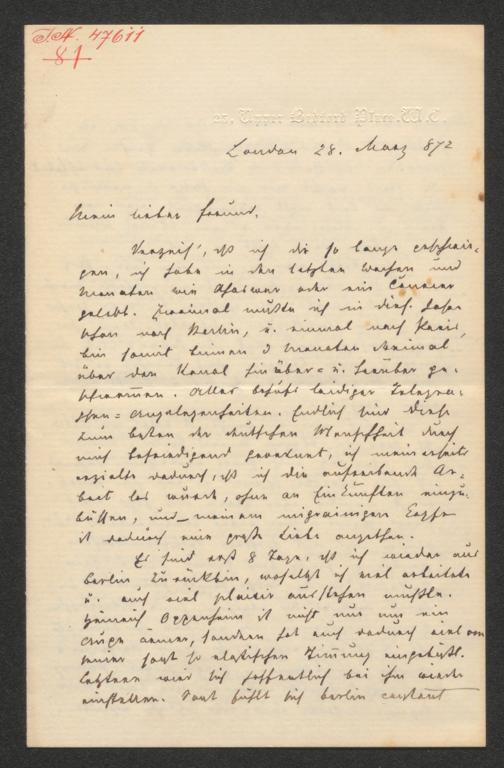 I.N. 47611
81
25, Upper Bedford Place. W.C.
London 28. März 872
Mein lieber Freund,
Verzeih', dß ich dir so lange geschwie-
gen, ich habe in den letzten Wochen und
Monaten wie Ahasver oder ein Courier
gelebt. Zweimal mußte ich in dies. Jahre
schon nach Berlin, u. einmal nach Paris,
bin somit binnen 3 Monaten 6mal
über den Kanal hinüber= u. herüber ge-
schwommen. Alles behufs leidiger Telegra-
phen=Angelegenheiten. Endlich sind diese
zum besten der deutschen Menschheit durch
mich befriedigend geordnet, ich meinerseits
erzielte dadurch, dß ich die aufreibende Ar-
beit los wurde, ohne an Einkünften einzu-
büßen, und meinem migrainigen Kopfe
ist dadurch eine große Liebe angethan.
Es sind erst 8 Tage, dß ich wieder aus
Berlin zurückbin, woselbst ich viel arbeitete
u. auch viel plaisir ausstehen mußte.
Heinrich Oppenheim ist nicht nur um ein
Auge ärmer, sondern hat auch dadurch viel von
seiner sonst so elastischen Stimmung eingebüßt.
Letztere wird sich hoffentlich bei ihm wieder
einstellen. Sonst fühlt sich Berlin